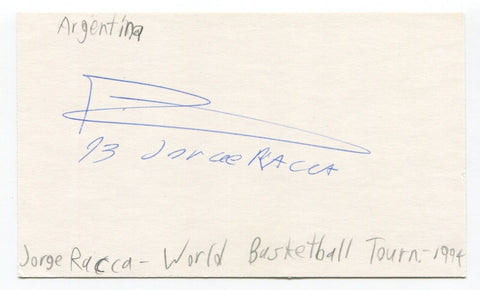 Argentina
13 Jorge RACCA
Jorge Racca - World Basketball Tourn - 1994